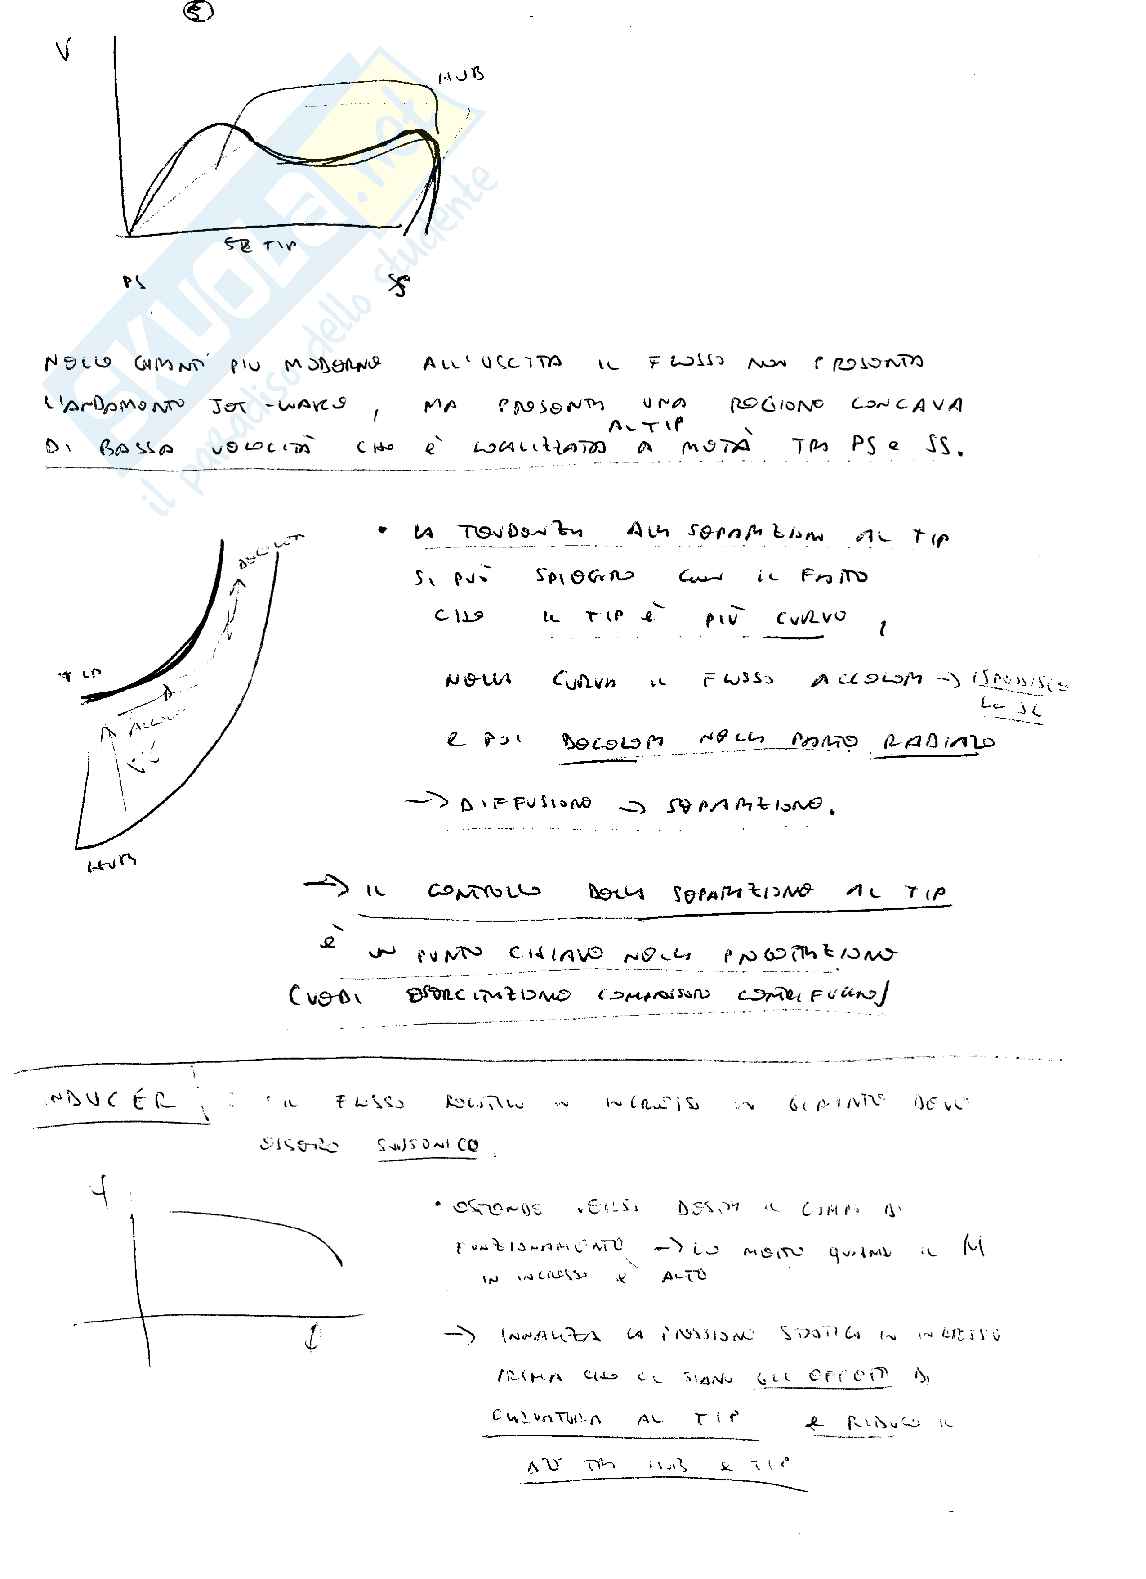 5
V
HUB
TIP
PS
SS
NELLE GIRANTI PIÙ MODERNE ALL'USCITA IL FLUSSO NON PRESENTA
L'ANDAMENTO JET-WAKE, MA PRESENTA UNA REGIONE CONCAVA
AL TIP
DI BASSA VELOCITÀ CHE È LOCALIZZATA A METÀ TRA PS e SS.
SKUOLA.net
il paradiso dello studente
• LA TENDENZA ALLA SEPARAZIONE AL TIP
SI PUÒ SPIEGARE CON IL FATTO
CHE IL TIP È PIÙ CURVO,
NELLA CURVA IL FLUSSO ACCELERA → ISPESSISCE
LO SL
E POI DECELERA NELLA PARTE RADIALE
→ DIFFUSIONE → SEPARAZIONE.
DECELERA
TIP
ACCELERA
HUB
→ IL CONTROLLO DELLA SEPARAZIONE AL TIP
È UN PUNTO CHIAVE NELLA PROGETTAZIONE
(VEDI ESERCITAZIONE COMPRESSORE CENTRIFUGO)
INDUCER : IL FLUSSO RELATIVO IN INGRESSO IN GIRANTE DEVE
ESSERE SUBSONICO
• ESTENDE VERSO DESTRA IL CAMPO DI
FUNZIONAMENTO → LO MOTO QUANDO IL M
IN INGRESSO È ALTO
→ INNALZA LA PRESSIONE STATICA IN INGRESSO
PRIMA CHE CI SIANO GLI EFFETTI DI
CURVATURA AL TIP E RIDUCE IL
ΔV TRA HUB E TIP